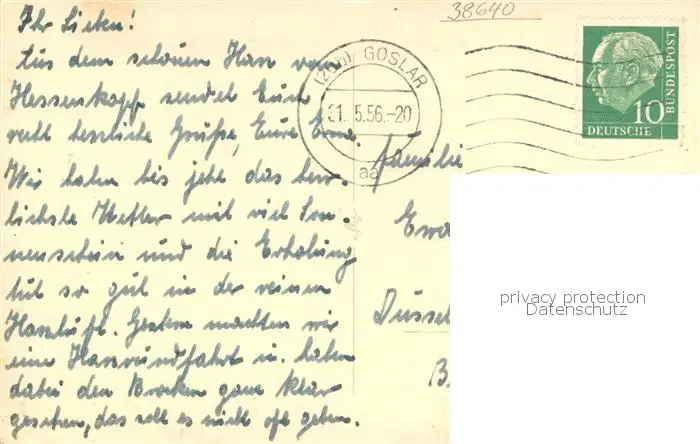 38640
Ihr Lieben!
Aus dem schönen Harz vom
Hessenkopf sendet Euch
recht herzliche Grüße, Eure Erna.
Wir haben bis jetzt das herr-
lichste Wetter mit viel Son-
nenschein und die Erholung
tut so gut in der reinen
Harzluft. Gestern machten wir
eine Harzrundfahrt u. haben
dabei den Brocken ganz klar
gesehen, das soll es nicht oft geben.
(20b) GOSLAR
31. 5.56.-20
aa
10
DEUTSCHE
BUNDESPOST
Familie
Ewa
Düssel
B
privacy protection
Datenschutz